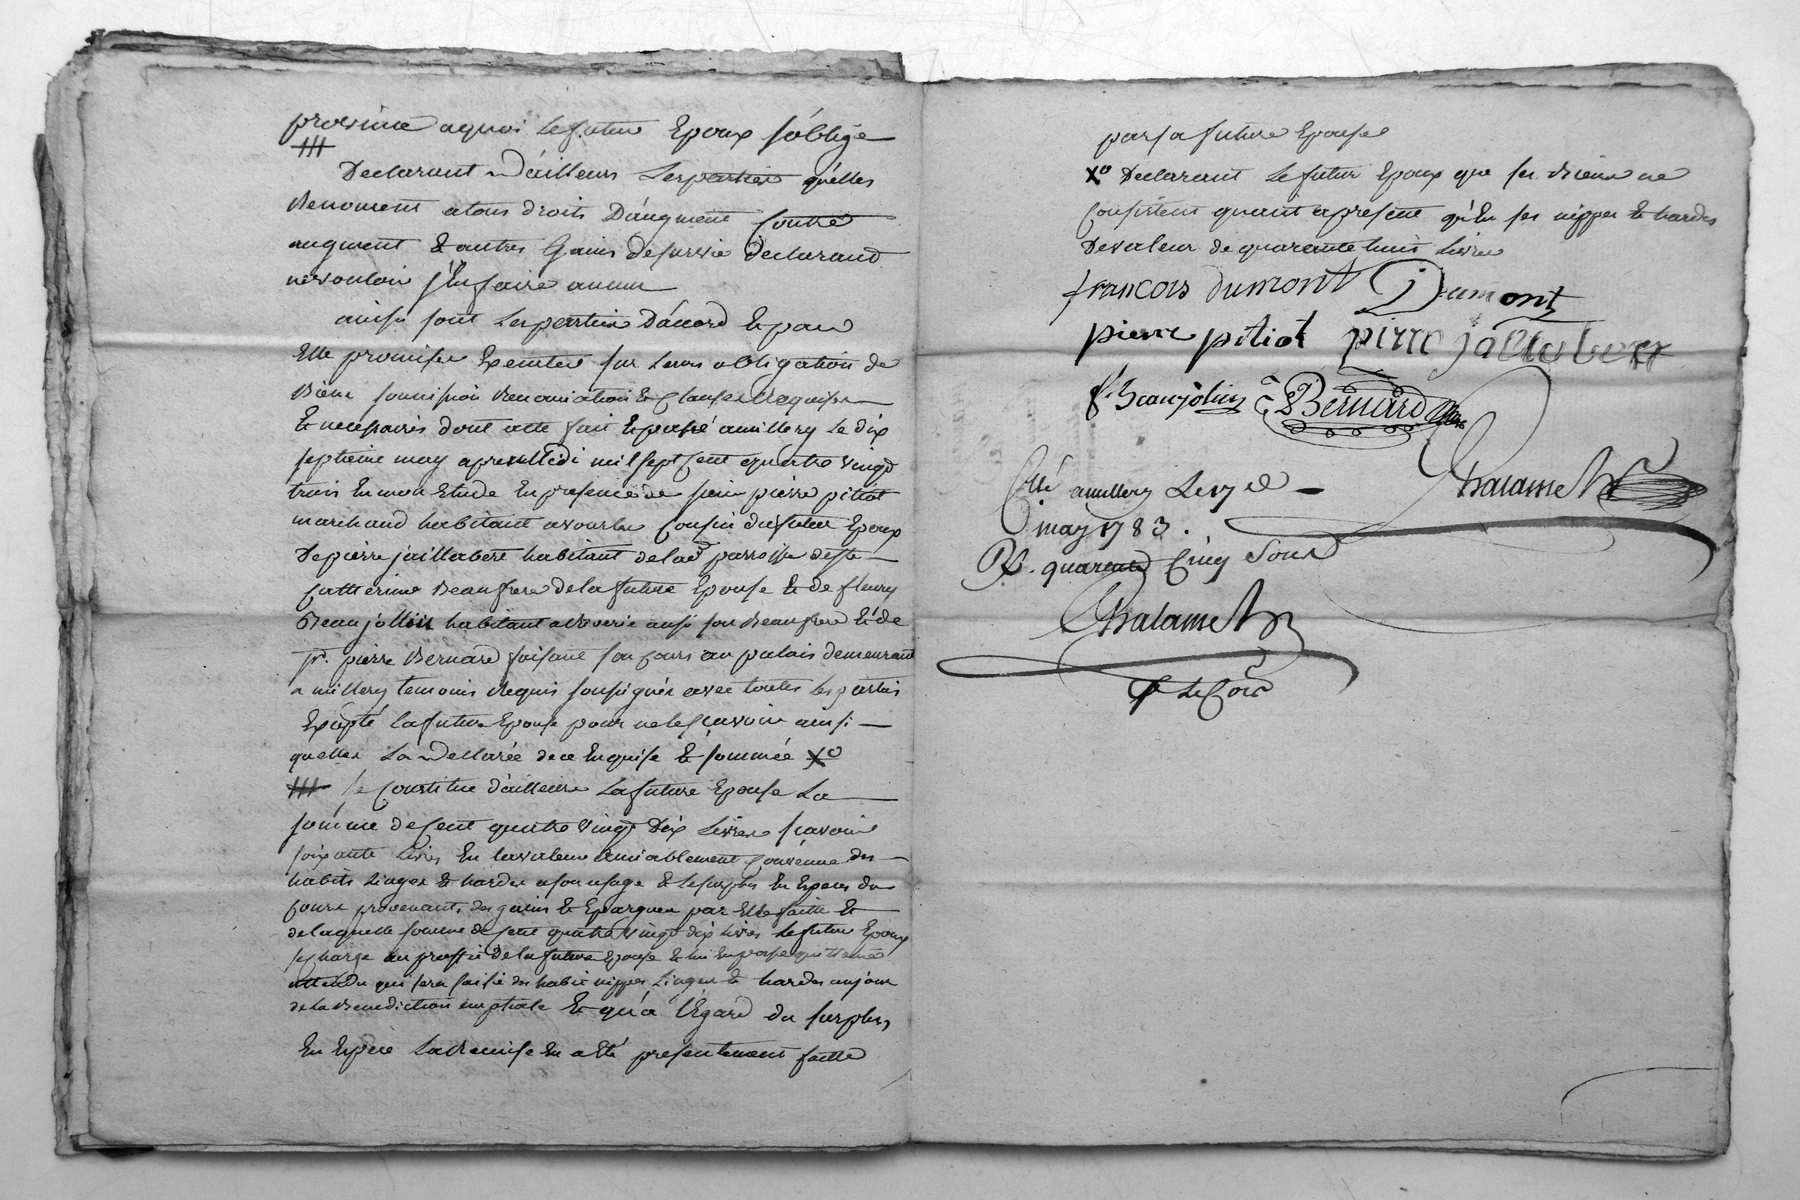 proxime aquoi Le futur Epoux s'oblige
Declarant d'ailleurs Les parties qu'elles
Renoncent atous droits D'augment Contre
augment & autres Gains de survie declarant
ne vouloir s'En faire aucun
ainsi sont Les parties D'accord & par
Elle promises Executer sur Leurs obligation de
Biens soumission Renonciation & Clauses Requises
& necessaires dont acte fait & passé a millery Le dix
septieme may apres Midi mil sept Cent quatre vingt
trois En mon Etude En presence de sieur pierre pitiot
marchand habitant a vourles Cousin du futur Epoux
De pierre jaillabert habitant de lad parroisse de ste
Catherine Beaufrere de la future Epouse & de fleury
Beaujollin habitant a Riverie aussi son Beaufrere & de
Sr. pierre Bernard faisant son Cours au palais demeurant
a millery temoins Requis soussignés avec toutes Les parties
Exepté La future Epouse pour ne le sçavoir ainsi
quelles La Declarée de ce Enquise & sommée Xo
/// se Constitue d'ailleurs La future Epouse La
somme de Cent quatre vingt Dix Livres sçavoir
soixante Livres En La valeur amiablement Convenue des
habits Linges & hardes a son usage & Le surplus En Especes du
Cours provenant des gains & Epargnes par Elle faits &
de laquelle somme de Cent quatre vingt dix Livres Le futur Epoux
se charge au proffit de la future Epouse & lui En passe quittance
attendu qui sera saisi des habits nippes Linges & hardes au jour
de La Benediction nuptiale & qu'a L'Egard du surplus
En Espece La Remise En a Eté presentement faitte
par sa future Epouse
Xo Declarant Le futur Epoux que ses Biens ne
Consistent quant apresent qu'En ses nippes & hardes
De valeur de quarante huit Livres
francois dumont Dumont
pierre pitiot pierre jallabert
f. Beaujolin P Bernard
Chalamel
Clé a millery Le 31
may 1783.
R. quarante Cinq Sous
Chalamel